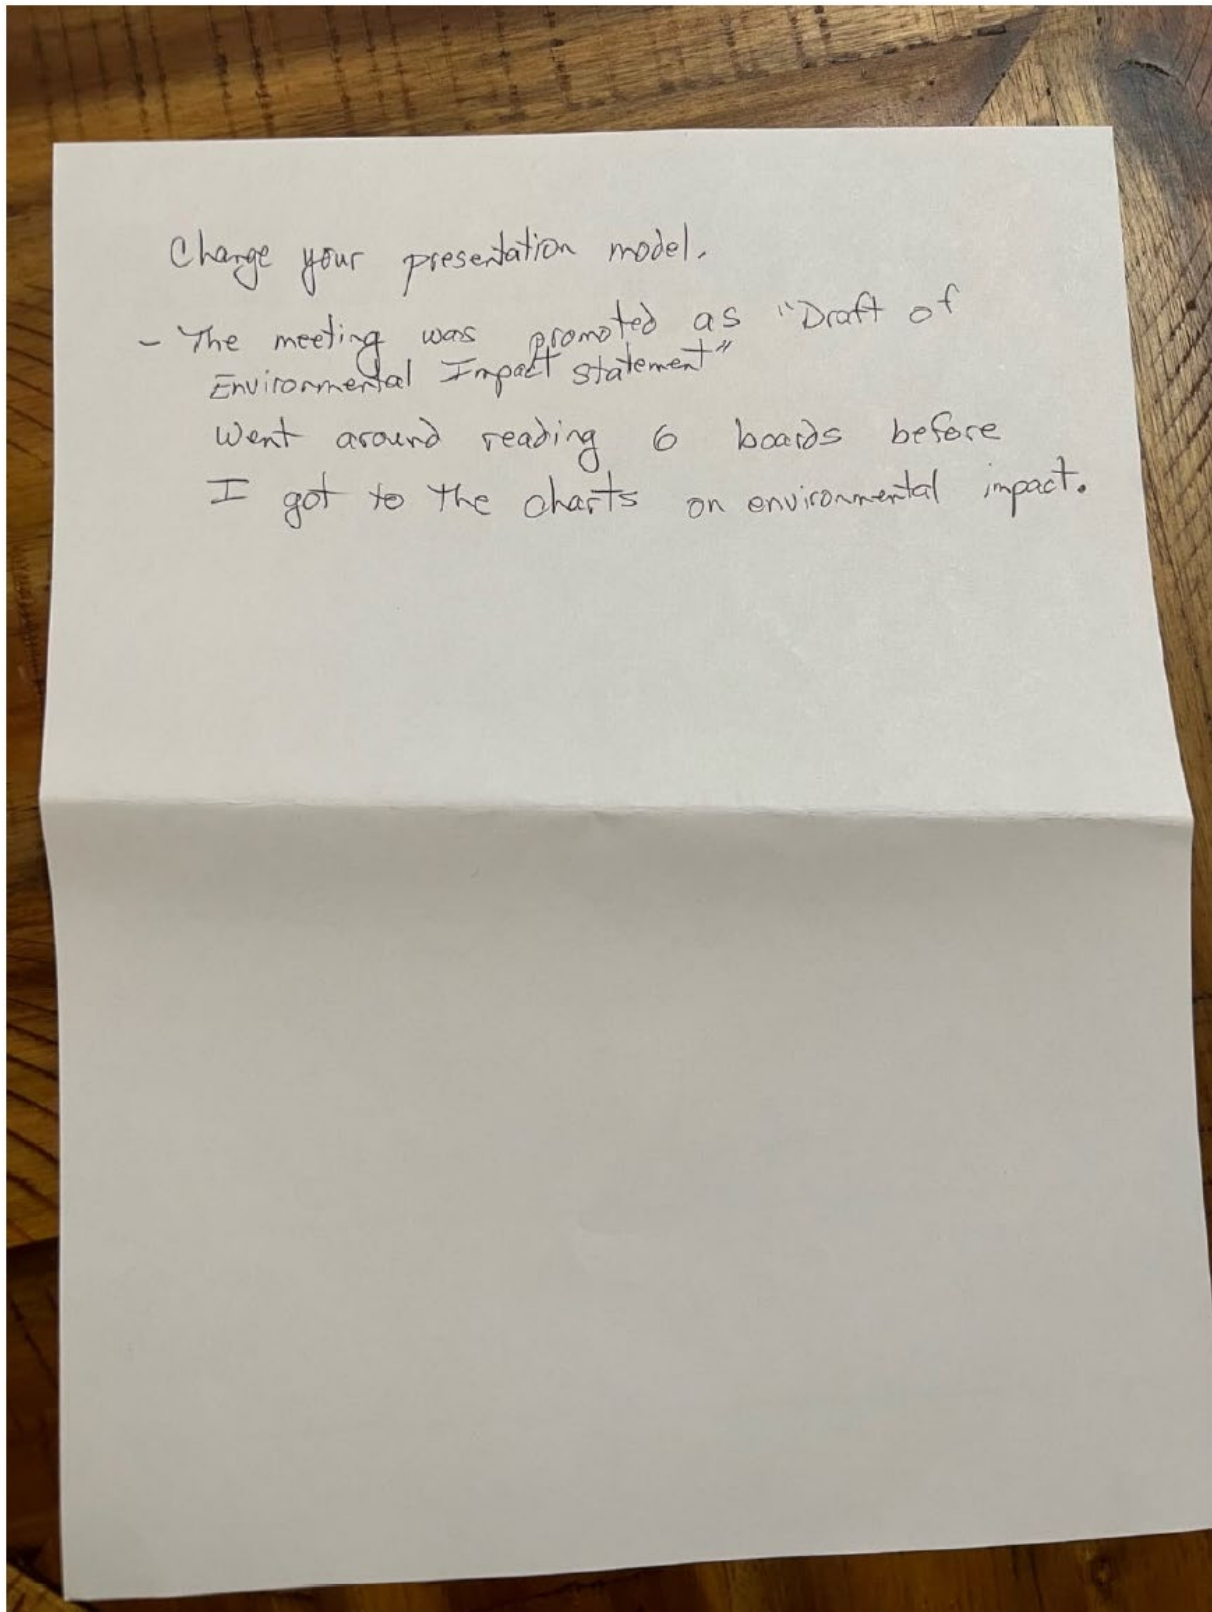 Change your presentation model.
- The meeting was promoted as "Draft of
Environmental Impact statement"
Went around reading 6 boards before
I got to the charts on environmental impact.